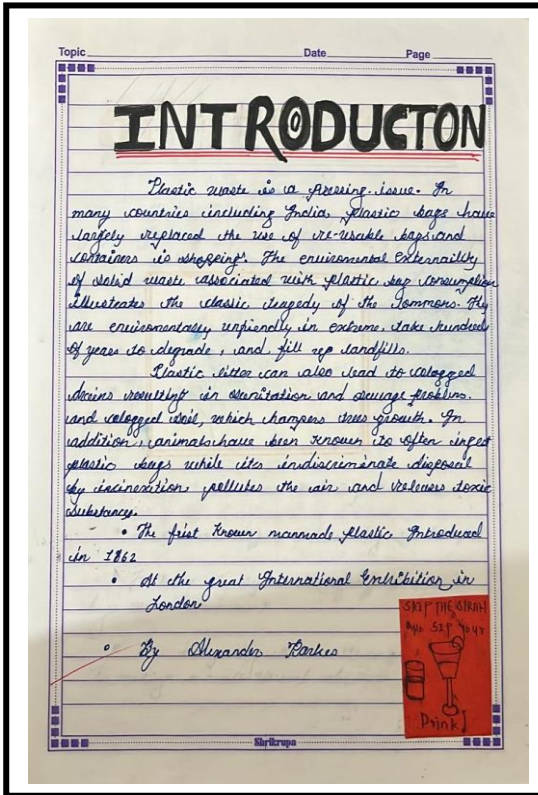 Topic Date Page
INTRODUCTON
Plastic waste is a pressing issue. In
many countries including India, plastic bags have
largely replaced the use of re-usable bags and
containers in shopping. The enviromental Externality
of solid waste associated with plastic bag consumption
illustrates the classic tragedy of the Commons. They
are enviromentaly unfriendly in extreme, take hundreds
of years to degrade, and fill up landfills.
Plastic litter can also lead to clogged
drains resulting in sanitation and sewage problems.
and clogged soil, which hampers tree growth. In
addition, animals have been known to often ingest
plastic bags while its indiscriminate disposal
by incineration pollutes the air and releases toxic
substances.
• The first known manmade plastic Introduced
in 1862
• At the great International Exhibition in
London
• By Alexander Parkes
SKIP THE STRAW
AND SIP YOUR
Drink
Shrikrupa